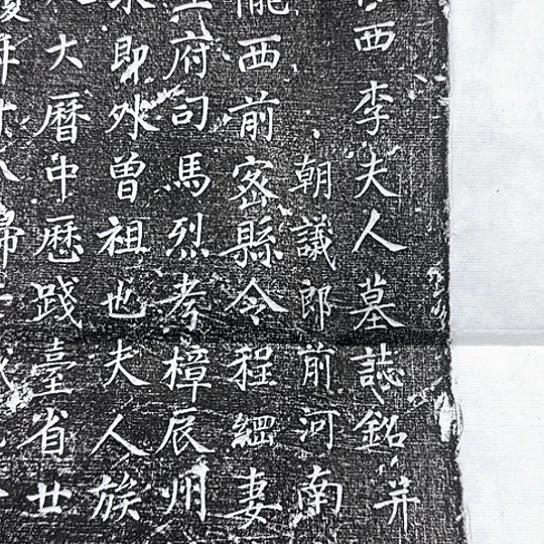 西李夫人墓誌銘并
朝議郎前河南
西前密縣令程綑妻
府司馬烈考樟辰州
即外曾祖也夫人族
大曆中歷踐臺省廿